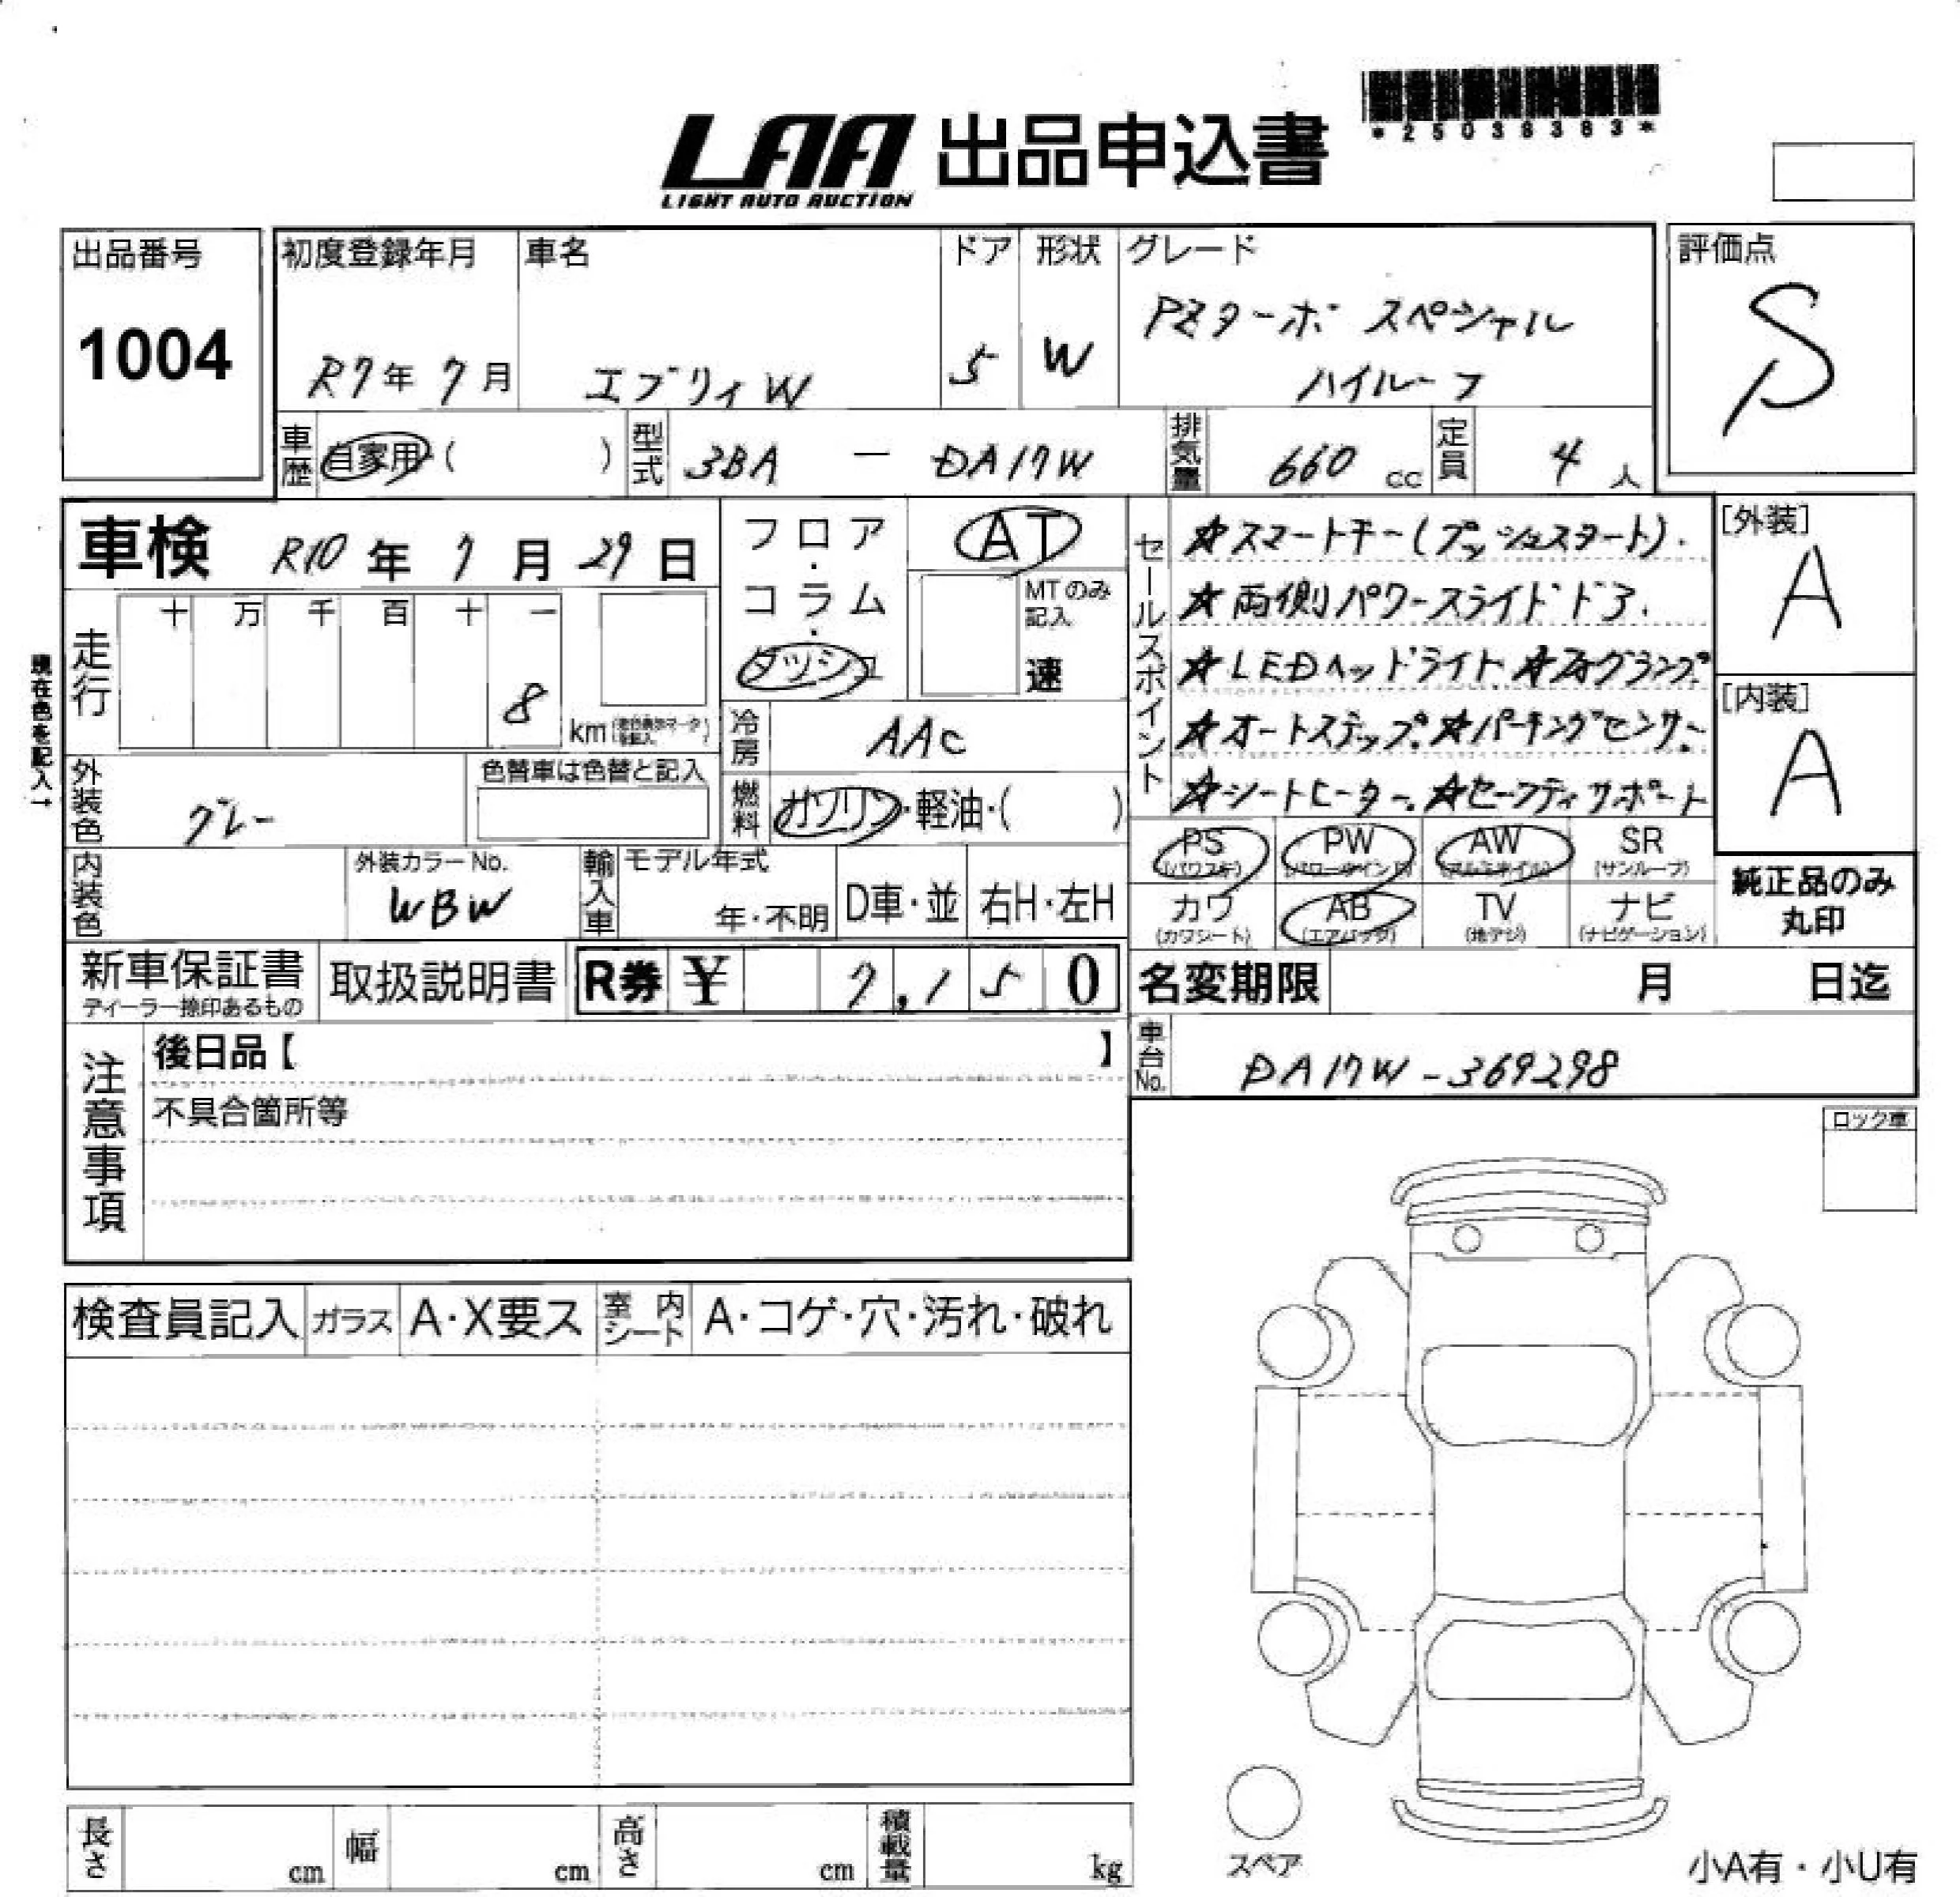 *25038383*
LAA 出品申込書
LIGHT AUTO AUCTION
出品番号
1004
初度登録年月
R7年 7月
車名
エブリィW
ドア
5
形状
W
グレード
PZターボ スペシャル
ハイルーフ
評価点
S
車歴
自家用 ( )
型式
3BA － DA17W
排気量
660 cc
定員
4 人
車検 R10 年 7 月 29 日
走行
十 万 千 百 十 一
8
km
現在色を記入→
フロア・
コラム・
ダッシュ
AT
MTのみ
記入
速
冷房
AAC
燃料
ガソリン・軽油・( )
外装色
グレー
色替車は色替と記入
内装色
外装カラーNo.
WBW
輸入車
モデル年式
年・不明
D車・並
右H・左H
セールスポイント
☆スマートキー(プッシュスタート).
☆両側パワースライドドア.
☆LEDヘッドライト ☆フォグランプ
☆オートステップ. ☆パーキングセンサー
☆シートヒーター. ☆セーフティサポート
[外装]
A
[内装]
A
PS
(パワステ)
PW
(パワーウインド)
AW
(アルミホイル)
SR
(サンルーフ)
カワ
(カワシート)
AB
(エアバック)
TV
(地デジ)
ナビ
(ナビゲーション)
純正品のみ
丸印
新車保証書
ディーラー捺印あるもの
取扱説明書
R券 ¥ 7,150
名変期限 月 日迄
車台No.
DA17W-369298
注意事項
後日品【 】
不具合箇所等
ロック車
検査員記入
ガラス
A・X要ス
室内シート
A・コゲ・穴・汚れ・破れ
長さ cm
幅 cm
高さ cm
積載量 kg
スペア
小A有・小U有